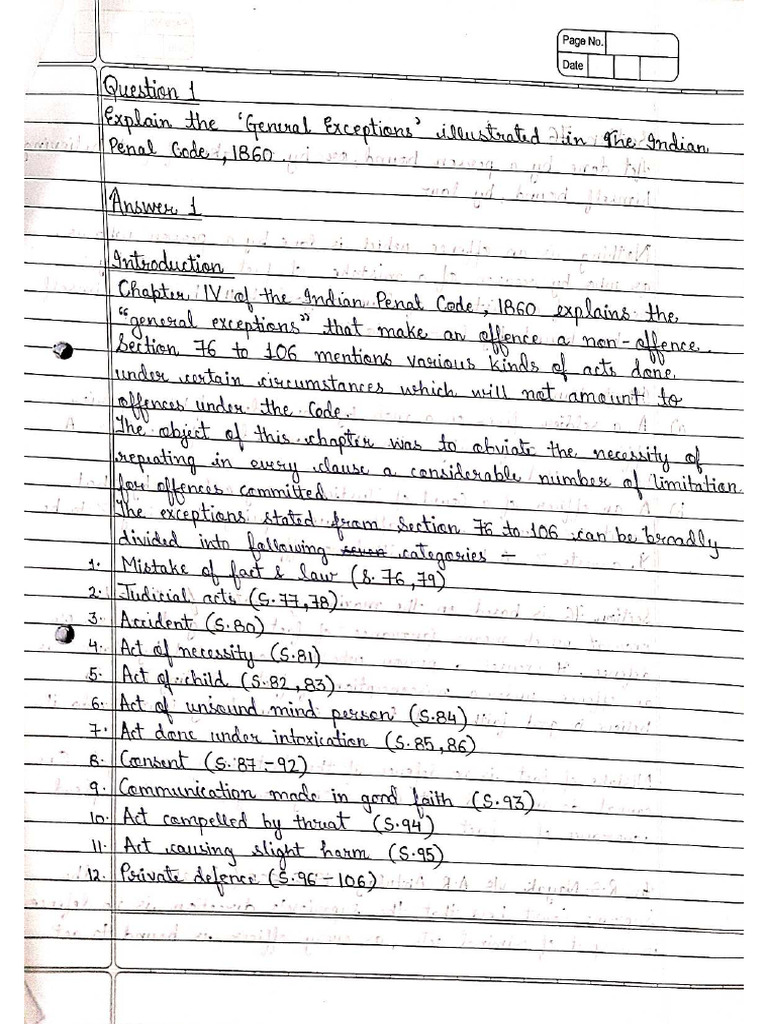 Page No.
Date
Question 1
Explain the 'General Exceptions' illustrated in The Indian
Penal Code, 1860.
Answer 1
Introduction
Chapter IV of the Indian Penal Code, 1860 explains the
"general exceptions" that make an offence a non-offence.
Section 76 to 106 mentions various kinds of acts done
under certain circumstances which will not amount to
offences under the Code.
The object of this chapter was to obviate the necessity of
repeating in every clause a considerable number of limitation
for offences committed.
The exceptions stated from Section 76 to 106 can be broadly
divided into following seven categories -
1. Mistake of fact & law (S. 76, 79)
2. Judicial acts (S. 77, 78)
3. Accident (S. 80)
4. Act of necessity (S. 81)
5. Act of child (S. 82, 83)
6. Act of unsound mind person (S. 84)
7. Act done under intoxication (S. 85, 86)
8. Consent (S. 87 - 92)
9. Communication made in good faith (S. 93)
10. Act compelled by threat (S. 94)
11. Act causing slight harm (S. 95)
12. Private defence (S. 96 - 106)